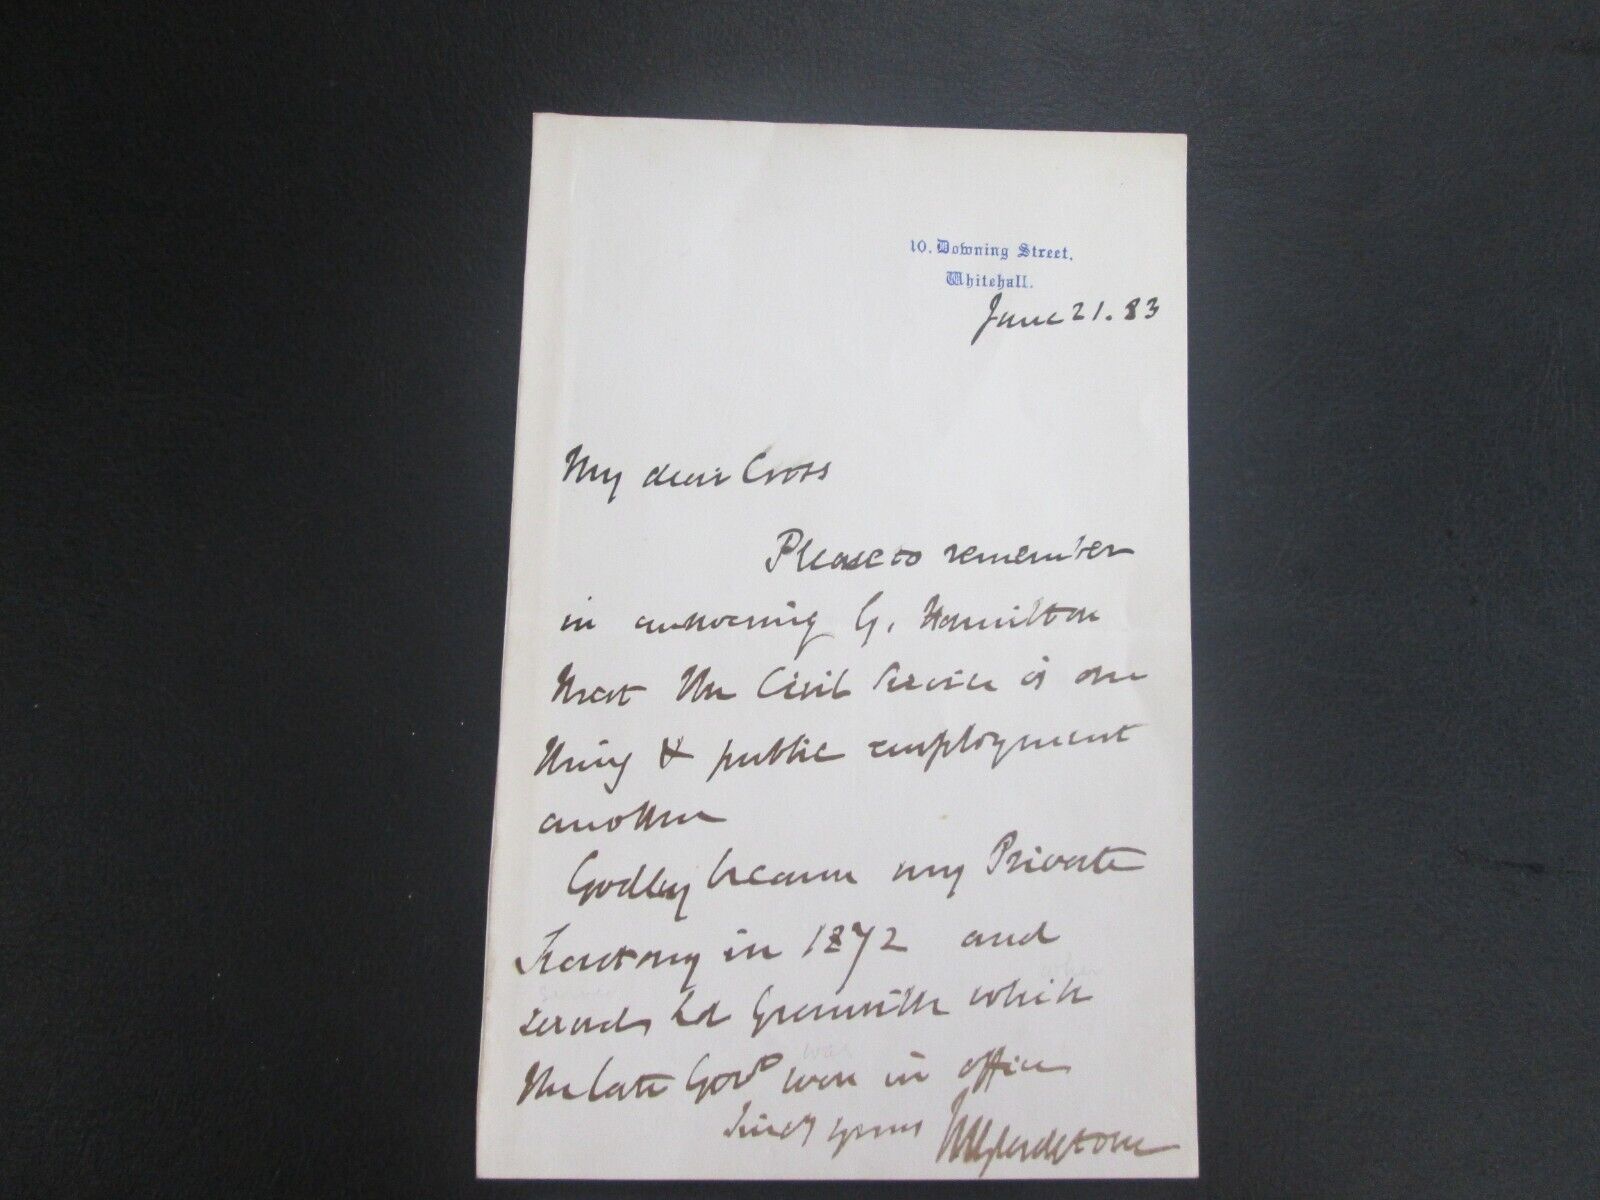 10. Downing Street.
Whitehall.
June 21. 83
My dear Cross
Please to remember
in answering G. Hamilton
that the Civil Service is one
thing & public employment
another
Godley became my Private
Secretary in 1872 and
served Ld Granville while
the late Govt was in office
Sincy yours WEGladstone